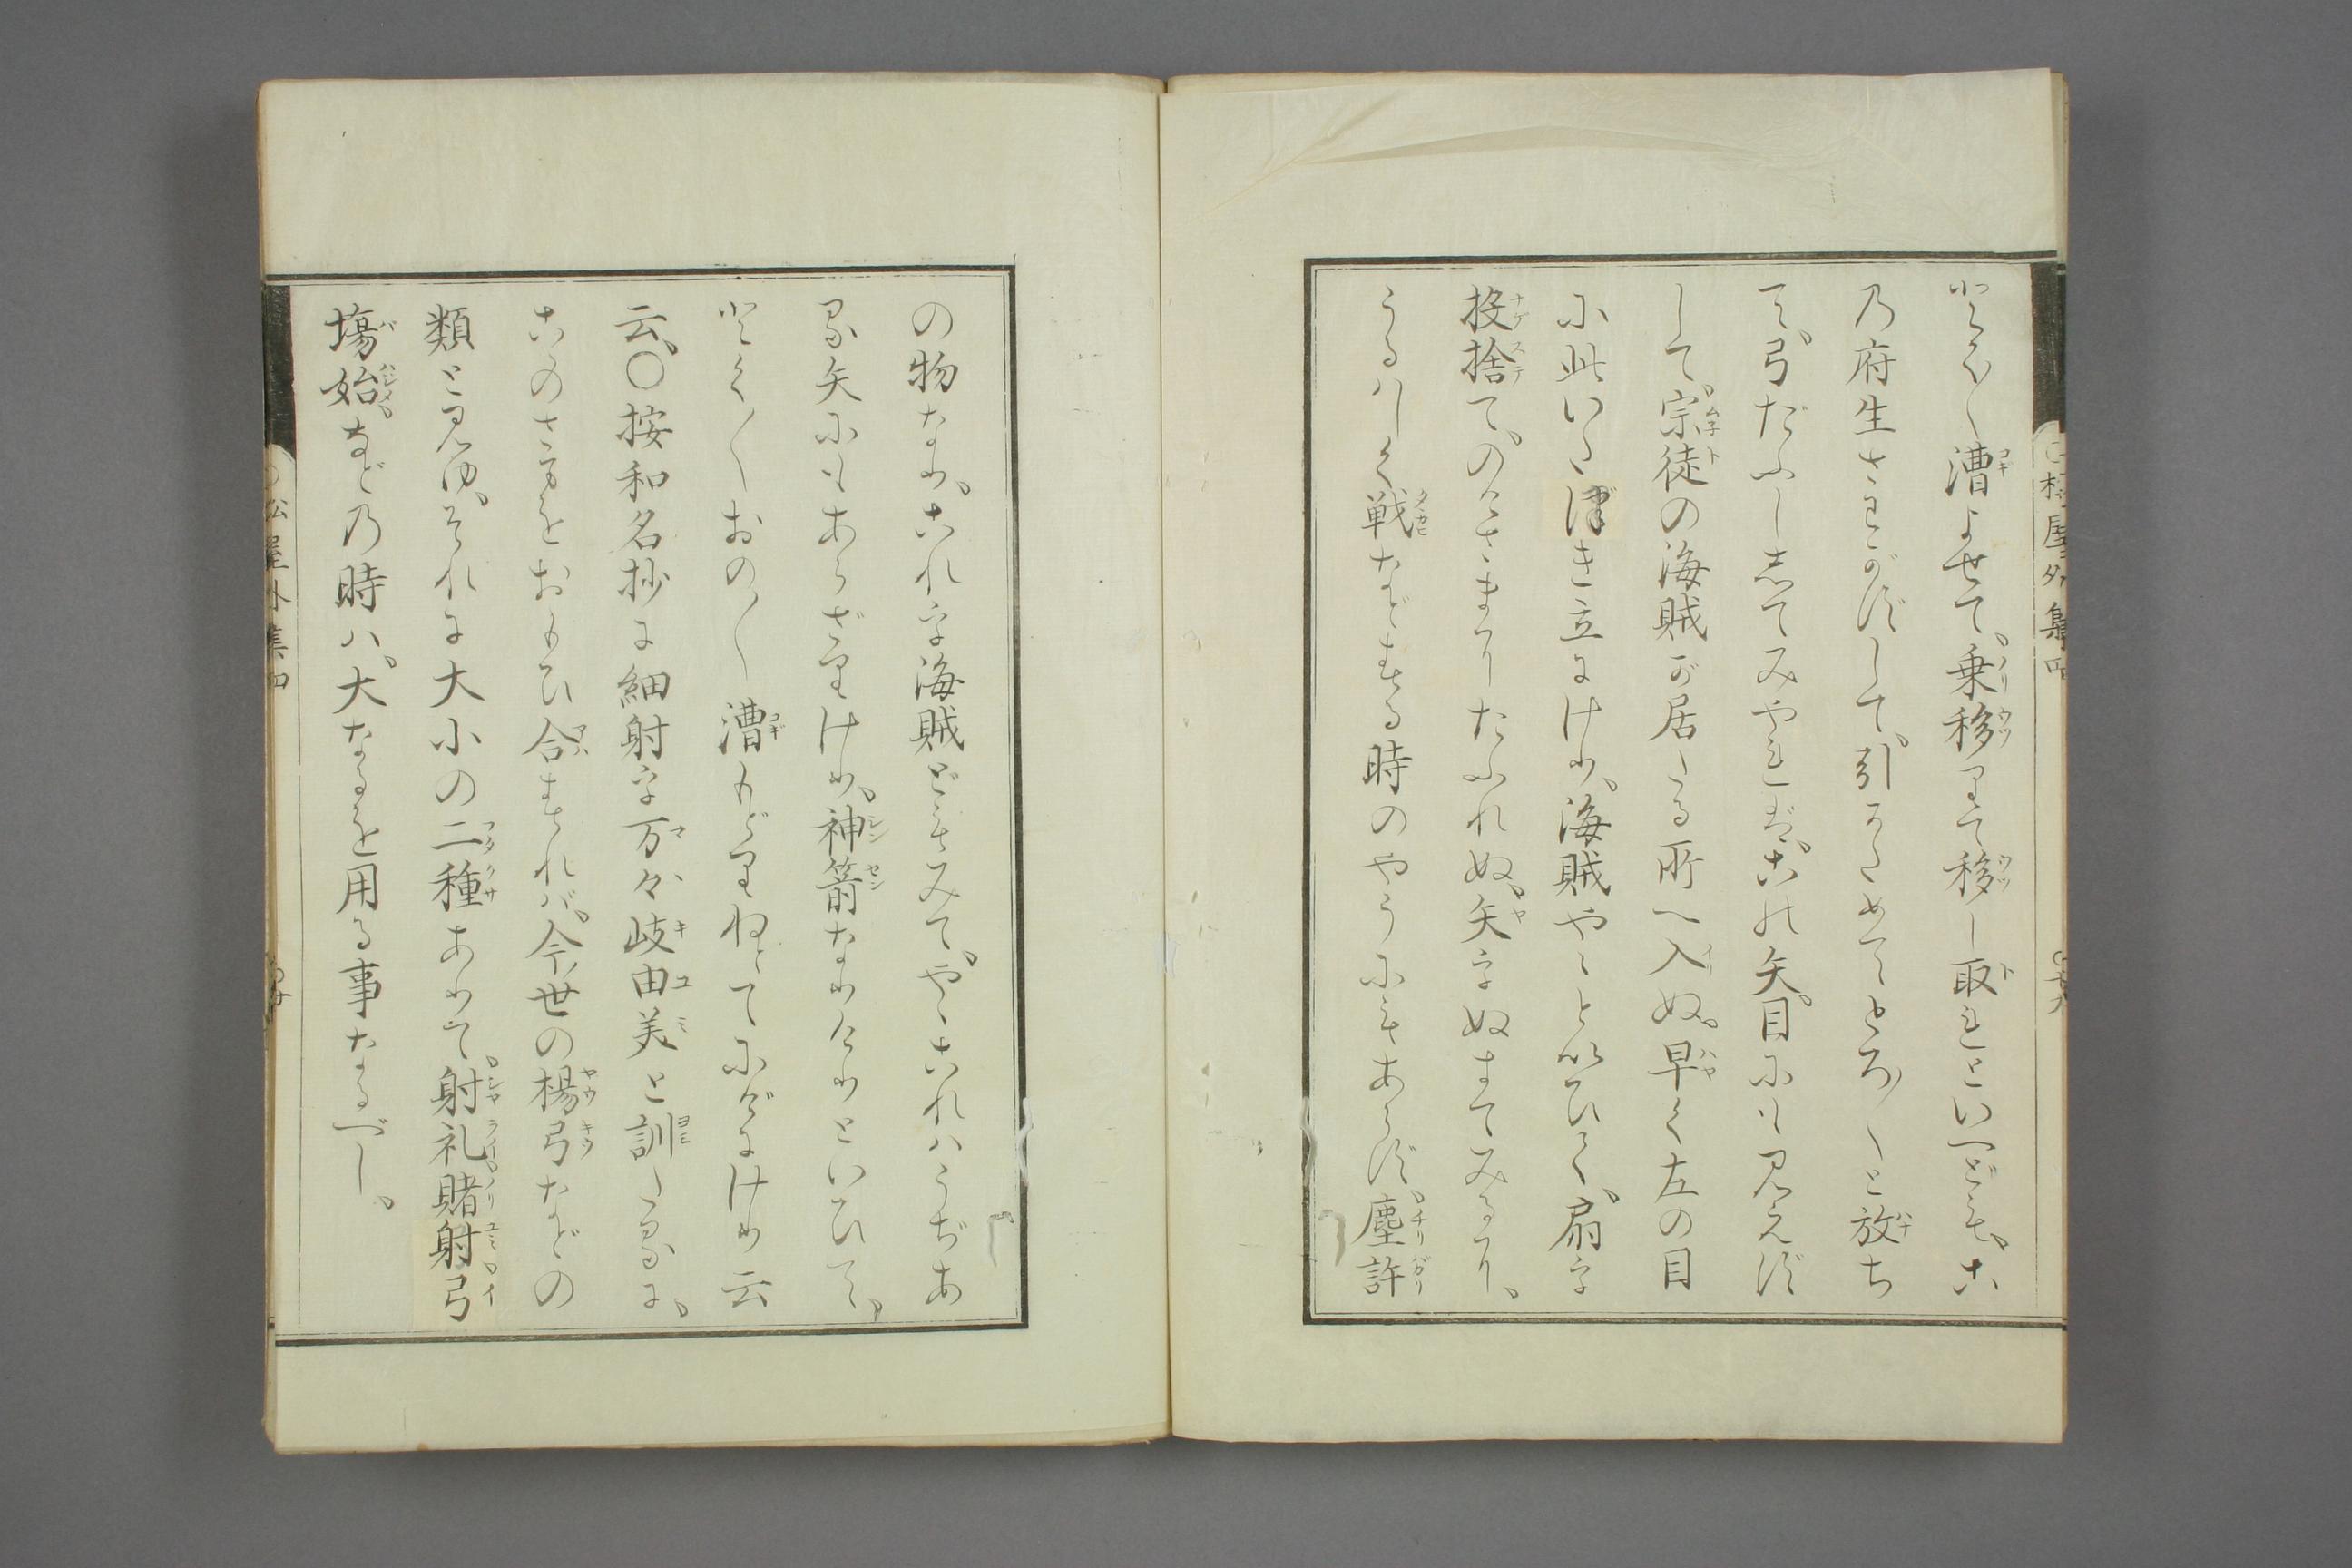 とく〳〵漕よせて、乗移りて移し取れといへども、こ
の府生さわがずして、引かためてとろ〳〵と放ち
て、弓だふししてみやれば、この矢、目にも見えず
して、宗徒の海賊が居たる所へ入ぬ。早く左の目
に此いたづき立にけり、海賊やゝといひて、扇を
投捨て、のけざまにたふれぬ、矢をぬきてみるに、
うるはしく戦などする時のやうにもあらず、塵許
の物なり、これを海賊どもみて、やゝこれはうちあ
る矢にもあらざりけり、神箭なりけりといひて、
とく〳〵おの〳〵漕もどりねとてにげにけり云
云、〇按和名抄に細射を万々岐由美と訓たるに、
このさまをおもひ合すれば、今ノ世の楊弓などの
類と見ゆ、それに大小の二種ありて、射礼賭射弓
場始などの時は、大なるを用る事なるべし、
松屋外集四
松屋外集四